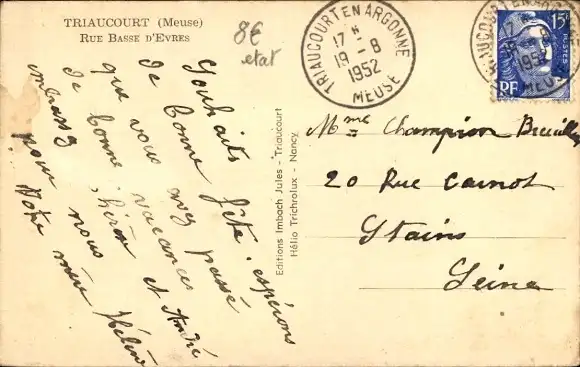 TRIAUCOURT (Meuse)
RUE BASSE D'EVRES
8€
etat
Souhaits
de bonne fête. espérons
que vous avez passé
de bonne vacances
et André
embrassez
pour nous
Votre mère Hélène
Editions Imbach Jules - Triaucourt
Hélio Trichrolux - Nancy
TRIAUCOURT EN ARGONNE
17 H
19 - 8
1952
MEUSE
15F
POSTES
RF
TRIAUCOURT EN ARGONNE
17 H
19 - 8
1952
MEUSE
Mme Champion
20 Rue Carnot
Stains
Seine